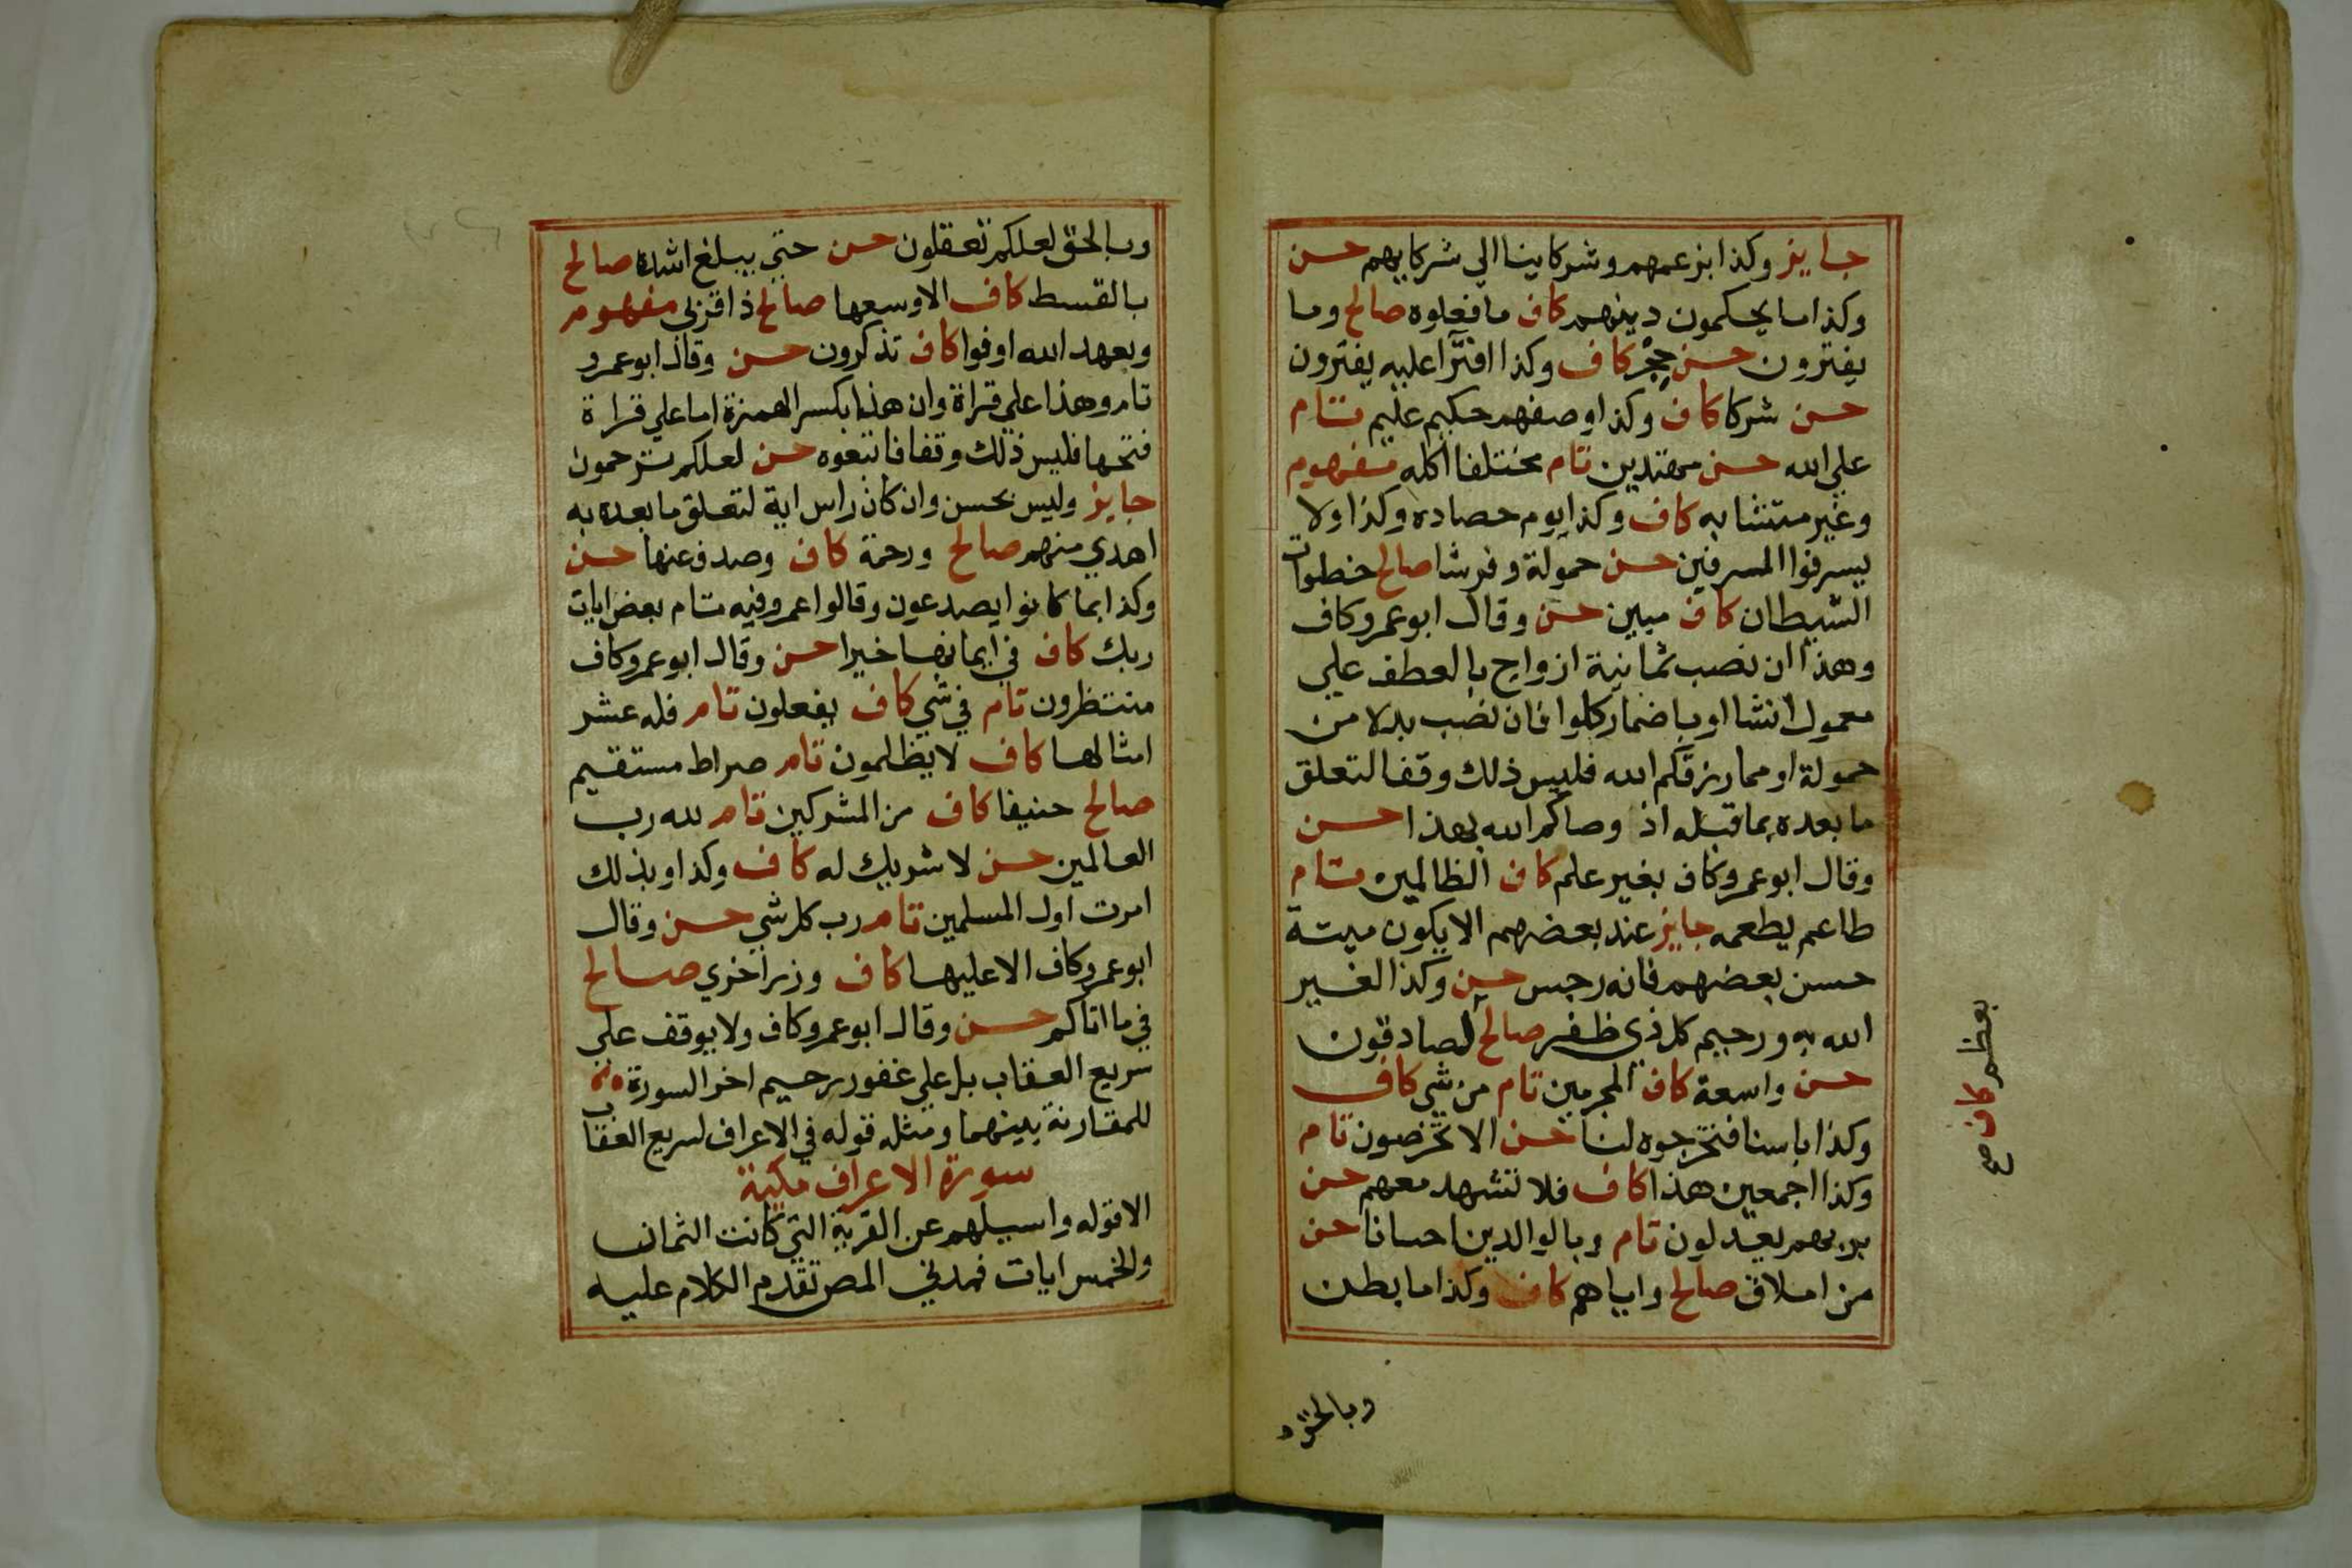 جايز وكذا بزعمهم وشركاينا الي شركايهم حسن
وكذا ما يحكمون دينهم كاف ما فعلوه صالح وما
يفترون حسن حِجْر كاف وكذا افترآ عليه يفترون
حسن شركا كاف وكذا وصفهم حكيم عليم تام
علي الله حسن مهتدين تام مختلفا اكله مفهوم
وغير متشابه كاف وكذا يوم حصاده وكذا ولا
يسرفوا المسرفين حسن حمولة وفرشا صالح خطوات
الشيطان كاف مبين حسن وقال ابو عمرو كاف
وهذا ان نصب ثمانية ازواج بالعطف علي
معمول انشا او باضمار كلوا فان نصب بدلا من
حمولة او مما رزقكم الله فليس ذلك وقفا لتعلق
ما بعده بما قبله اذ وصاكم الله بهذا حسن
وقال ابو عمرو كاف بغير علم كاف الظالمين تام
طاعم يطعمه جايز عند بعضهم الا يكون ميتة
حسن بعضهم فانه رجس حسن وكذا لغير
الله به ورحيم كل ذي ظفر صالح لصادقون
حسن واسعة كاف المجرمين تام من شي كاف
وكذا باسنا فتخرجوه لنا حسن الا تخرصون تام
وكذا اجمعين هذا كاف فلا تشهد معهم حسن
بربهم يعدلون تام وبالوالدين احسانا حسن
من املاق صالح واياهم كاف وكذا ما بطن
بعظم كاف صح
وبالحق
وبالحق لعلكم تعقلون حسن حتي يبلغ اشده صالح
بالقسط كاف الا وسعها صالح ذا قربي مفهوم
وبعهد الله اوفوا كاف تذكرون حسن وقال ابو عمرو
تام وهذا علي قراة وان هذا بكسر الهمزة اما علي قراة
فتحها فليس ذلك وقفا فاتبعوه حسن لعلكم ترحمون
جايز وليس بحسن وان كان راس اية لتعلق ما بعده به
اهدي منهم صالح ورحمة كاف وصدف عنها حسن
وكذا بما كانوا يصدعون وقالوا عمرو فيه تام بعض ايات
ربك كاف في ايمانها خيرا حسن وقال ابو عمرو كاف
منتظرون تام في شي كاف يفعلون تام فله عشر
امثالها كاف لا يظلمون تام صراط مستقيم
صالح حنيفا كاف من المشركين تام لله رب
العالمين حسن لا شريك له كاف وكذا وبذلك
امرت اول المسلمين تام رب كل شي حسن وقال
ابو عمرو كاف الا عليها كاف وزر اخري صالح
في ما اتاكم حسن وقال ابو عمرو كاف ولا يوقف علي
سريع العقاب بل علي غفور رحيم اخر السورة
للمقارنة بينهما ومثله قوله في الاعراف لسريع العقاب
سورة الاعراف مكية
الا قوله واسيلهم عن القرية التي كانت الثمان
والخمس ايات فمدني المص تقدم الكلام عليه